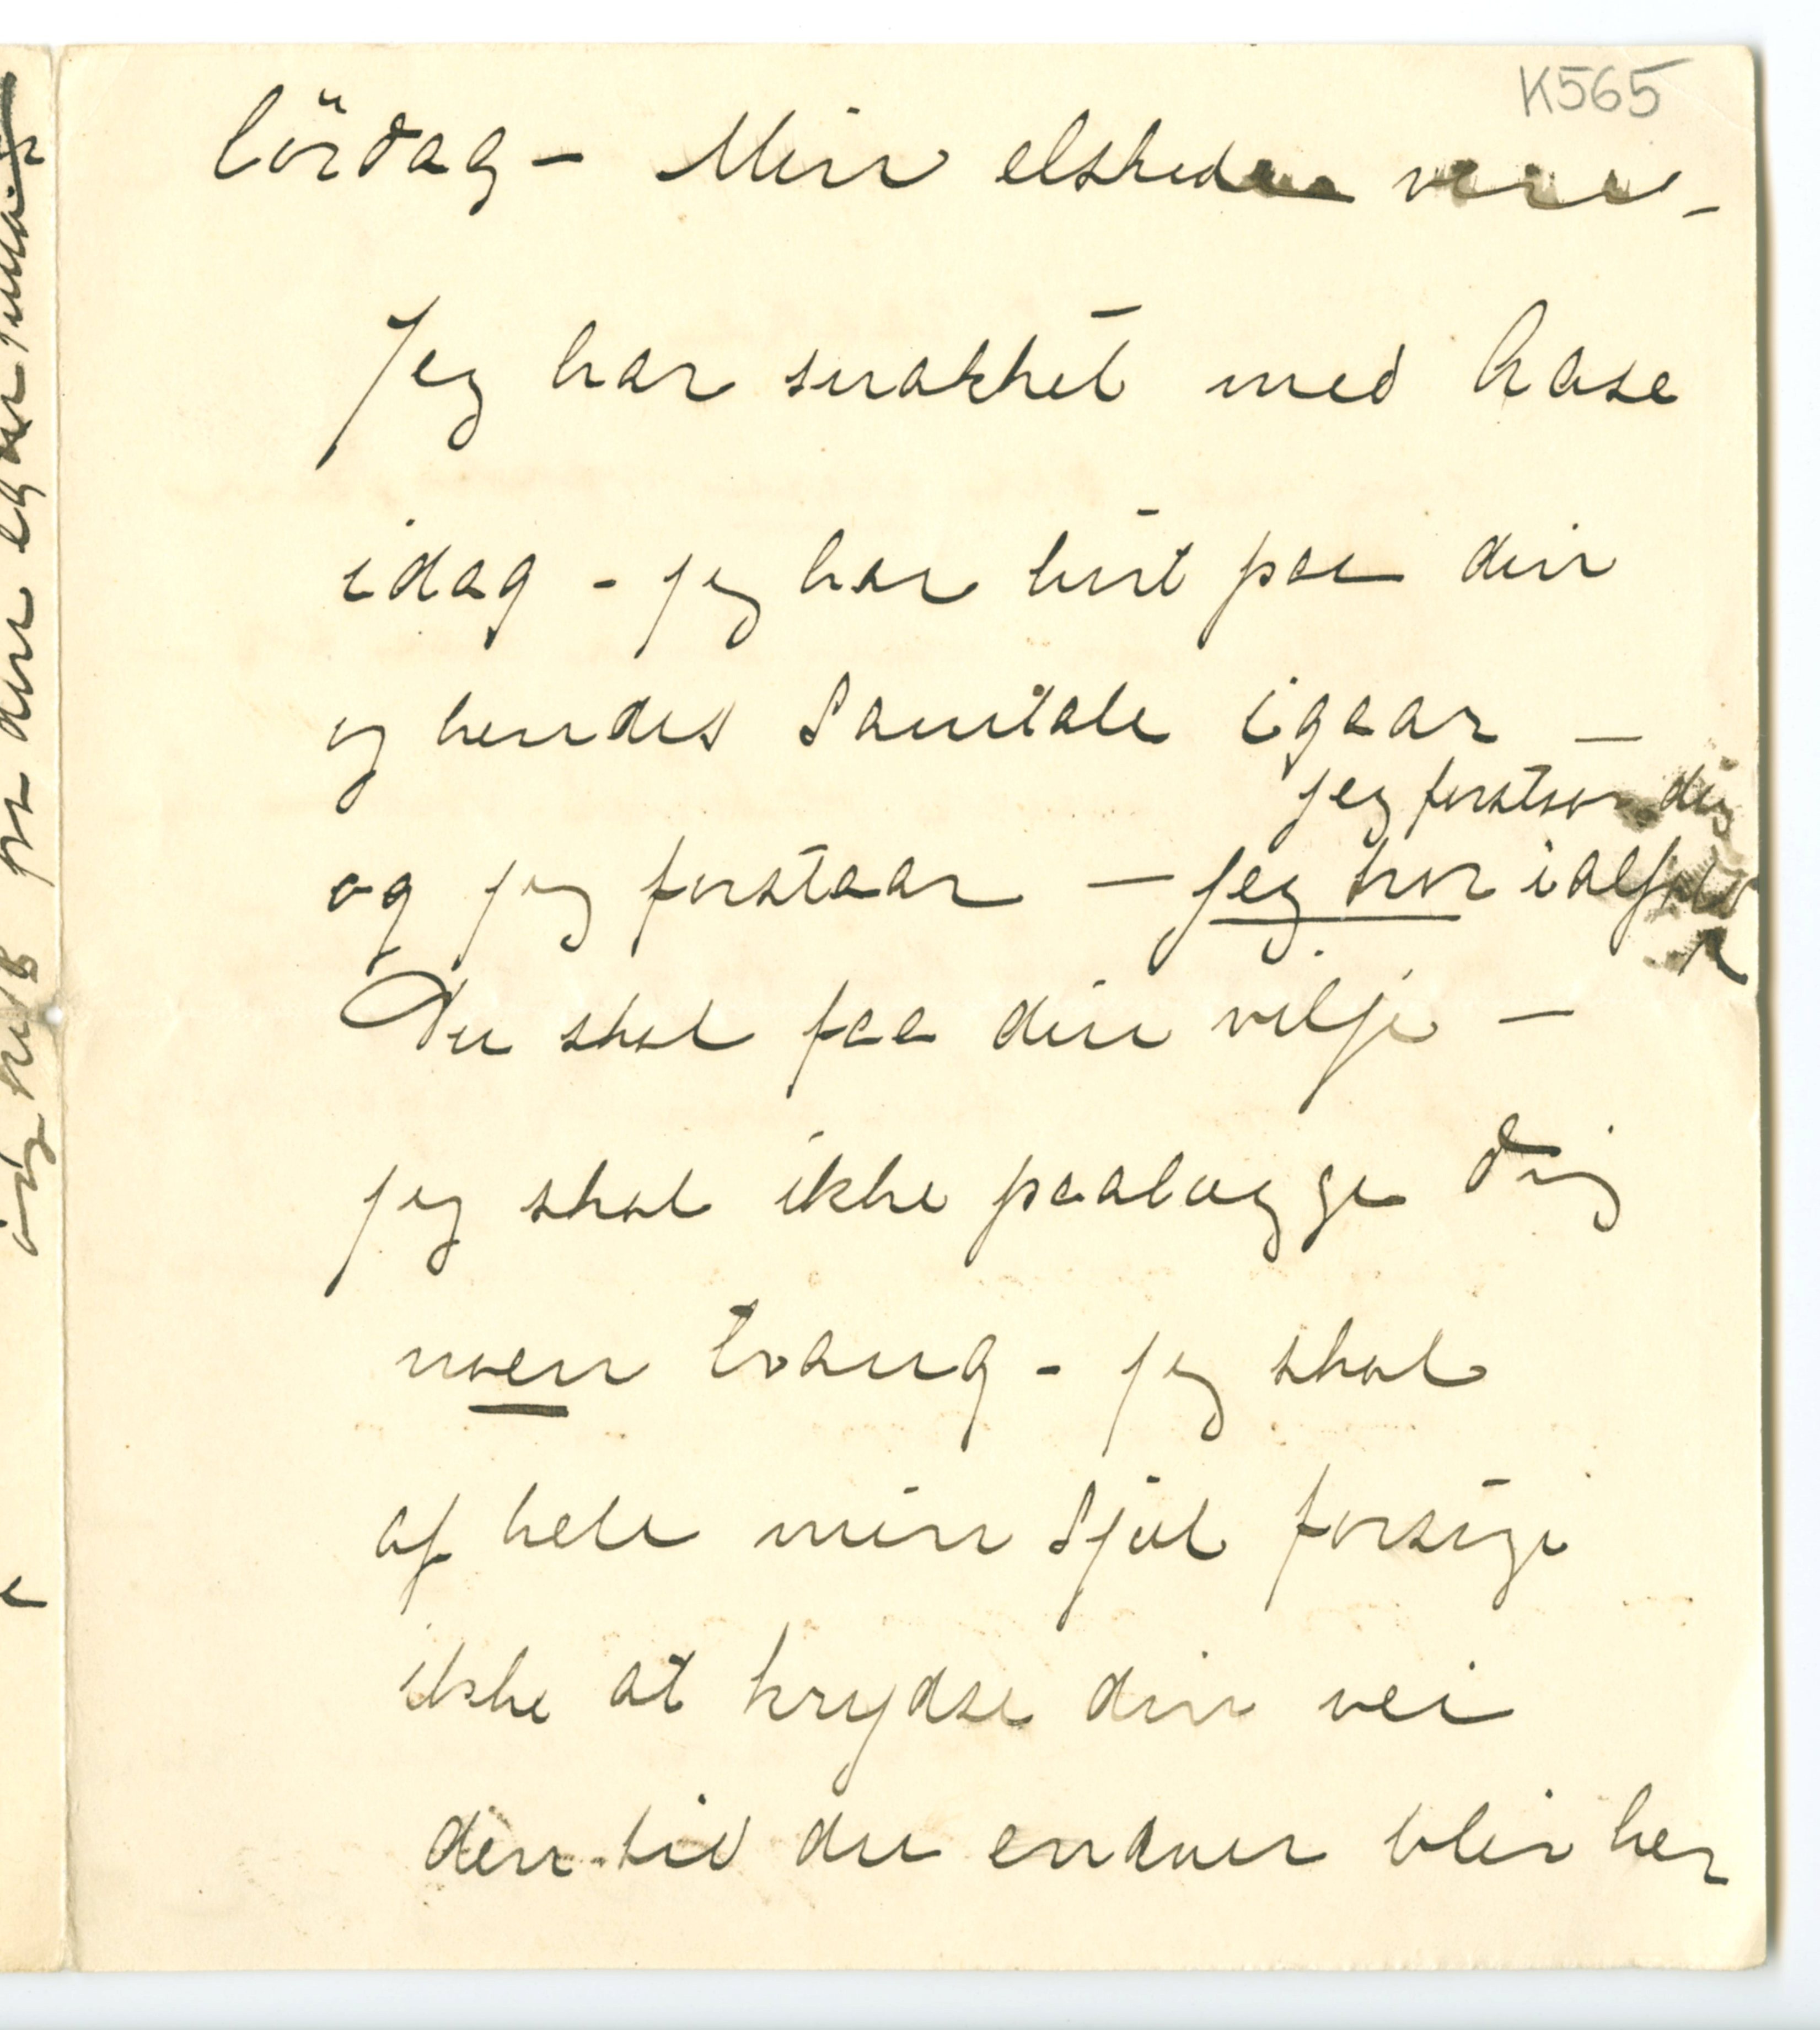 K565
lördag – Min elskede ven –
Jeg har snakket med Aase
idag – jeg har hört paa din
og hendes Samtale igaar –
jeg forstaar dig
og jeg forstaar – jeg tror ialfald
Du skal faa din vilje –
jeg skal ikke paalægge dig
noen tvang – jeg skal
af hele min Sjæl forsöge
ikke at krydse din vei
den tid du endnu blir her